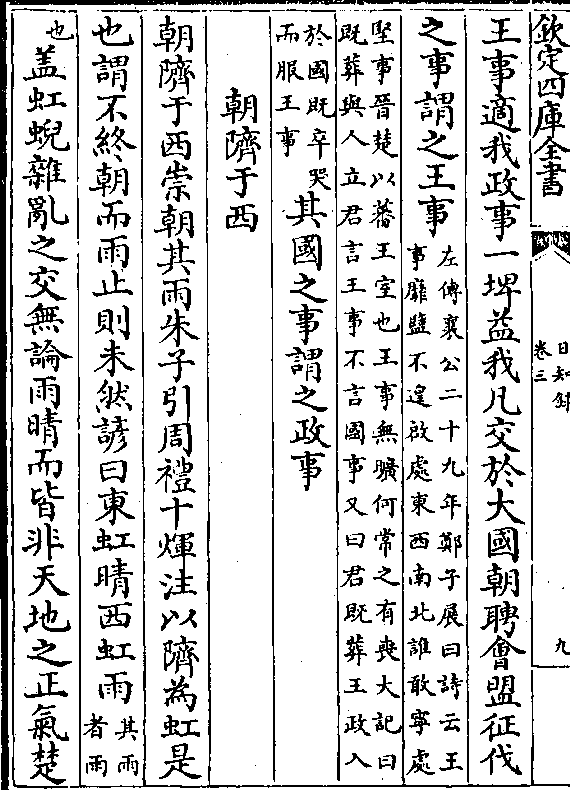 欽定四庫全書
日知錄
卷三
九
王事適我政事一埤益我凡交於大國朝聘會盟征伐
之事謂之王事
左傳襄公二十九年鄭子展曰詩云王
事靡盬不遑啟處東西南北誰敢寧處
堅事晉楚以蕃王室也王事無曠何常之有喪大記曰
既葬與人立君言王事不言國事又曰君既葬王政入
於國既卒哭
而服王事
其國之事謂之政事
朝隮于西
朝隮于西崇朝其雨朱子引周禮十煇注以隮為虹是
也謂不終朝而雨止則未然諺曰東虹晴西虹雨
其雨
者雨
也
盖虹蜺雜亂之交無論雨晴而皆非天地之正氣楚